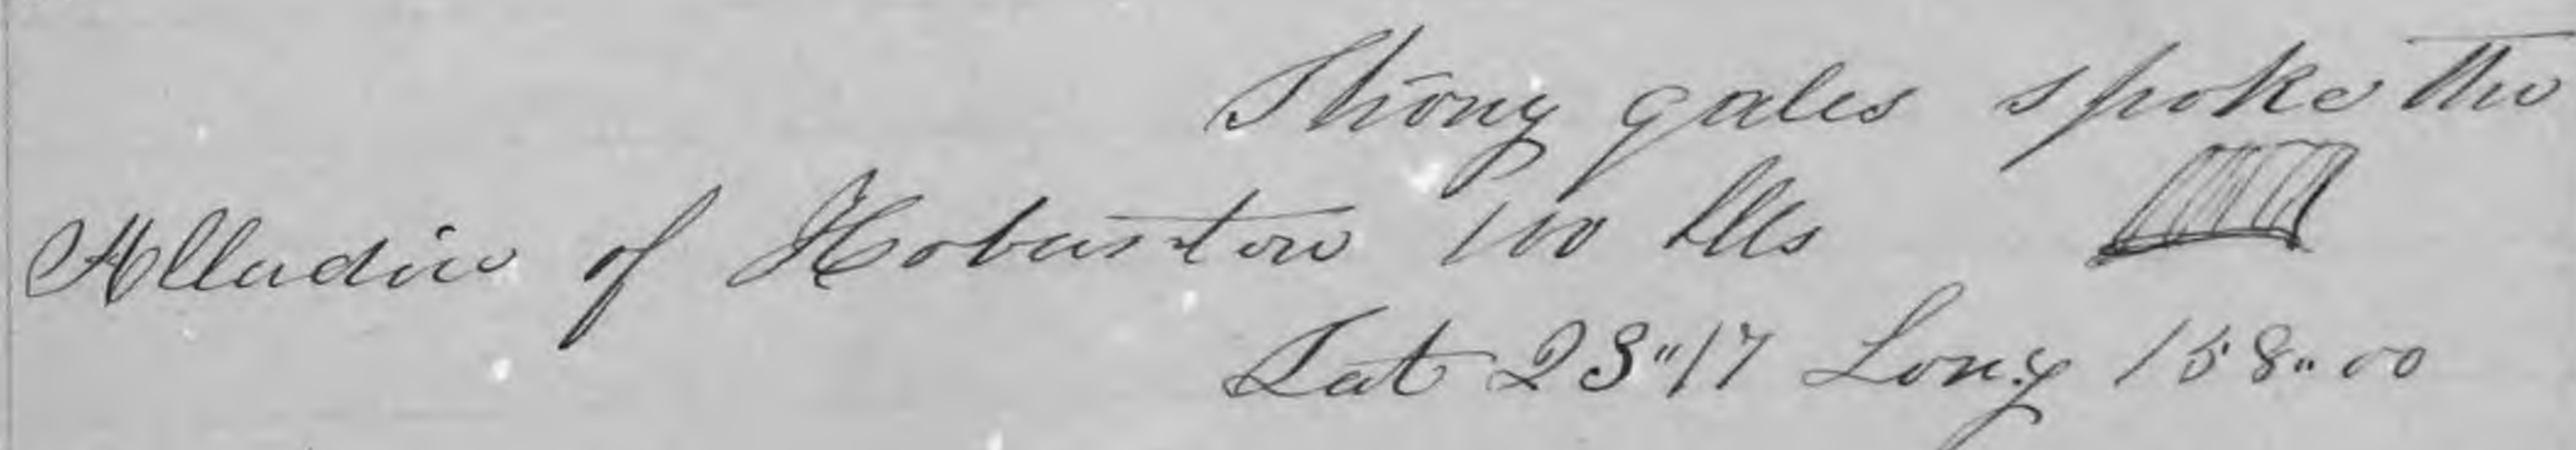 Strong gales spoke the
Alladin of Hobarton 100 bbls
Lat 23"17 Long 158"00